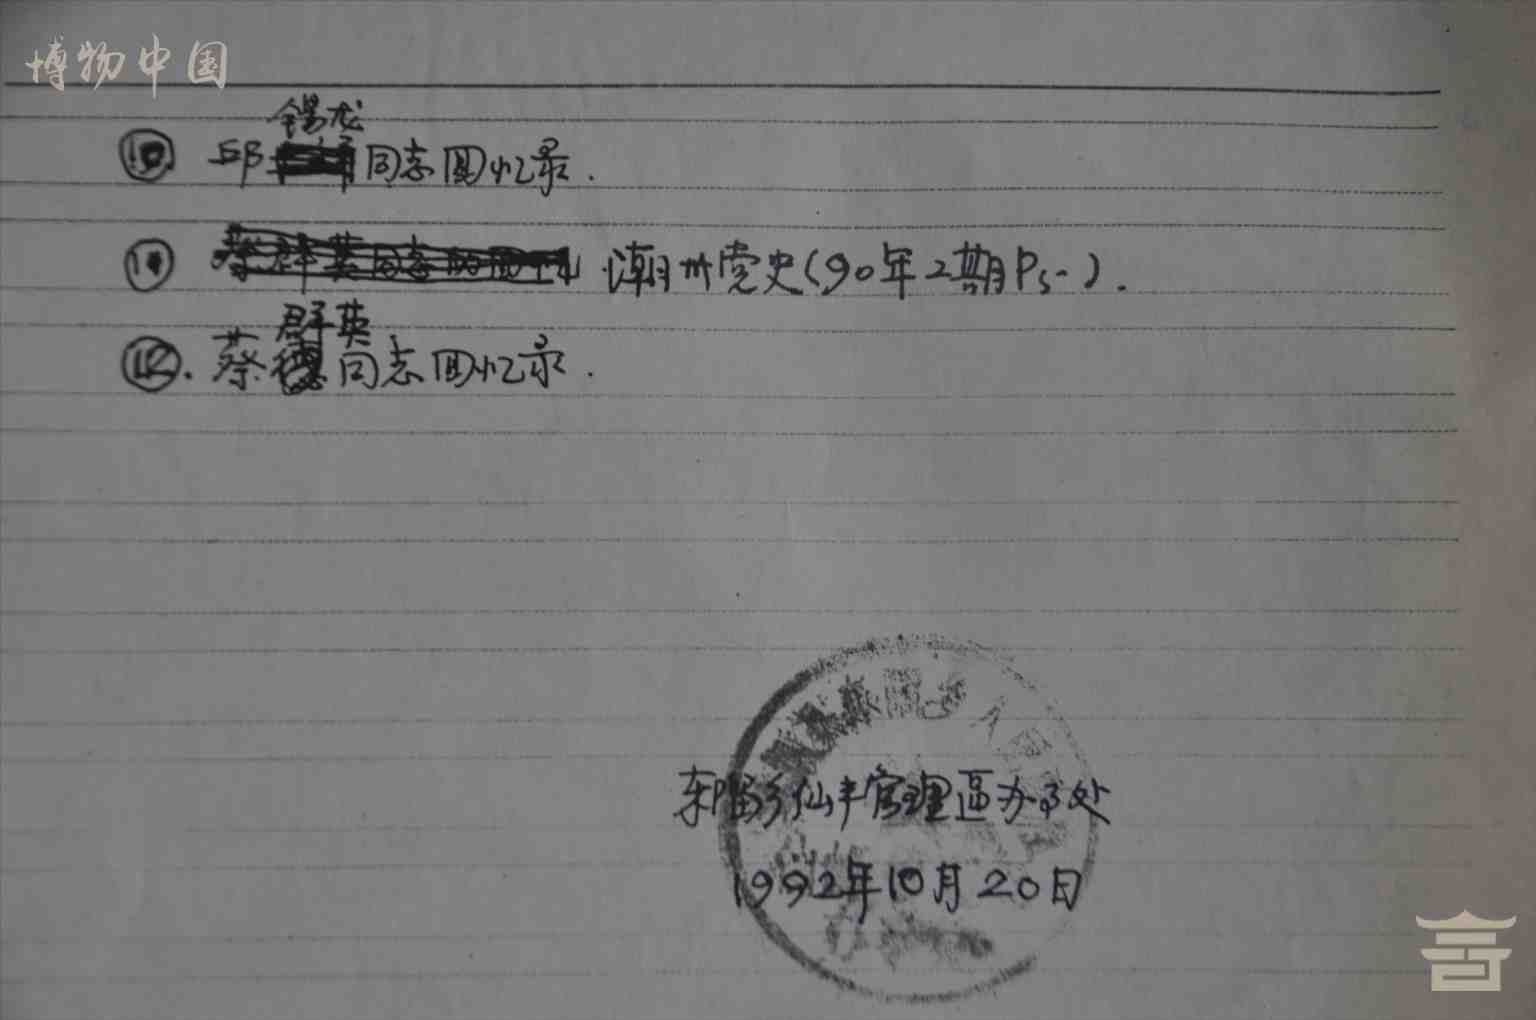 博物中国
⑩ 邱锡龙同志回忆录.
⑪ 潮州党史(90年2期P5-).
⑫. 蔡群英同志回忆录.
东留乡仙丰管理區办事处
1992年10月20日